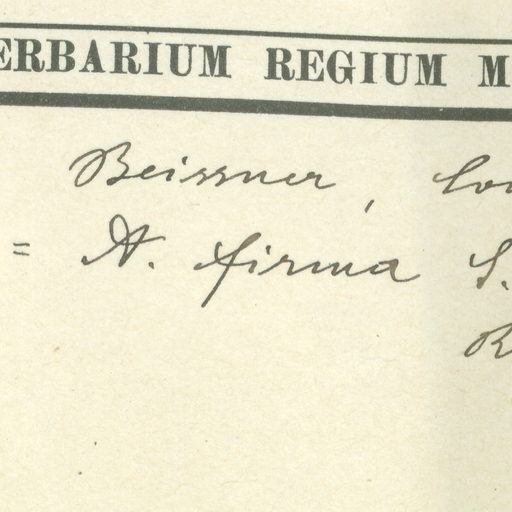 ERBARIUM REGIUM M
Beissner, Co
= A. firma S.
R